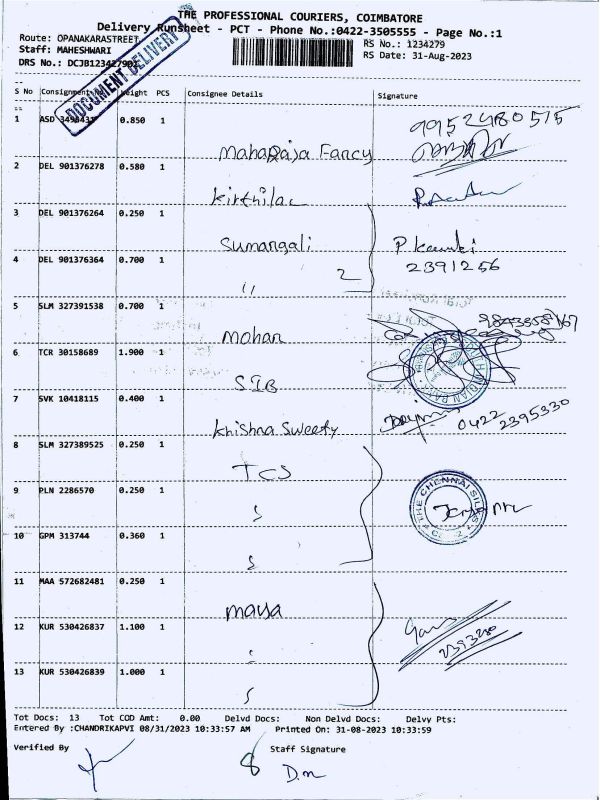 THE PROFESSIONAL COURIERS, COIMBATORE
Delivery Runsheet - PCT - Phone No.:0422-3505555 - Page No.:1
Route: OPANAKARASTREET
RS No.: 1234279
Staff: MAHESHWARI
RS Date: 31-Aug-2023
DRS No.: DCJB1234279
DOCUMENT DELIVERY
S No Consignment Weight PCS Consignee Details Signature
1 ASD 0.850 1 9952480575
Maharaja Fancy
2 DEL 901376278 0.580 1
Kirthilal
3 DEL 901376264 0.250 1
Sumangali P
4 DEL 901376364 0.700 1 2391256
" 2
5 SLM 327391538 0.700 1
Mohan
6 TCR 30158689 1.900 1
SIB
7 SVK 10418115 0.400 1
Krishna Sweety 0422 2395330
8 SLM 327389525 0.250 1
TCS
9 PLN 2286570 0.250 1
THE CHENNAI SILKS
10 GPM 313744 0.360 1
11 MAA 572682481 0.250 1
maya
12 KUR 530426837 1.100 1
13 KUR 530426839 1.000 1
Tot Docs: 13 Tot COD Amt: 0.00 Delvd Docs: Non Delvd Docs: Delvy Pts:
Entered By :CHANDRIKAPVI 08/31/2023 10:33:57 AM Printed On: 31-08-2023 10:33:59
Verified By Staff Signature
8 D.m